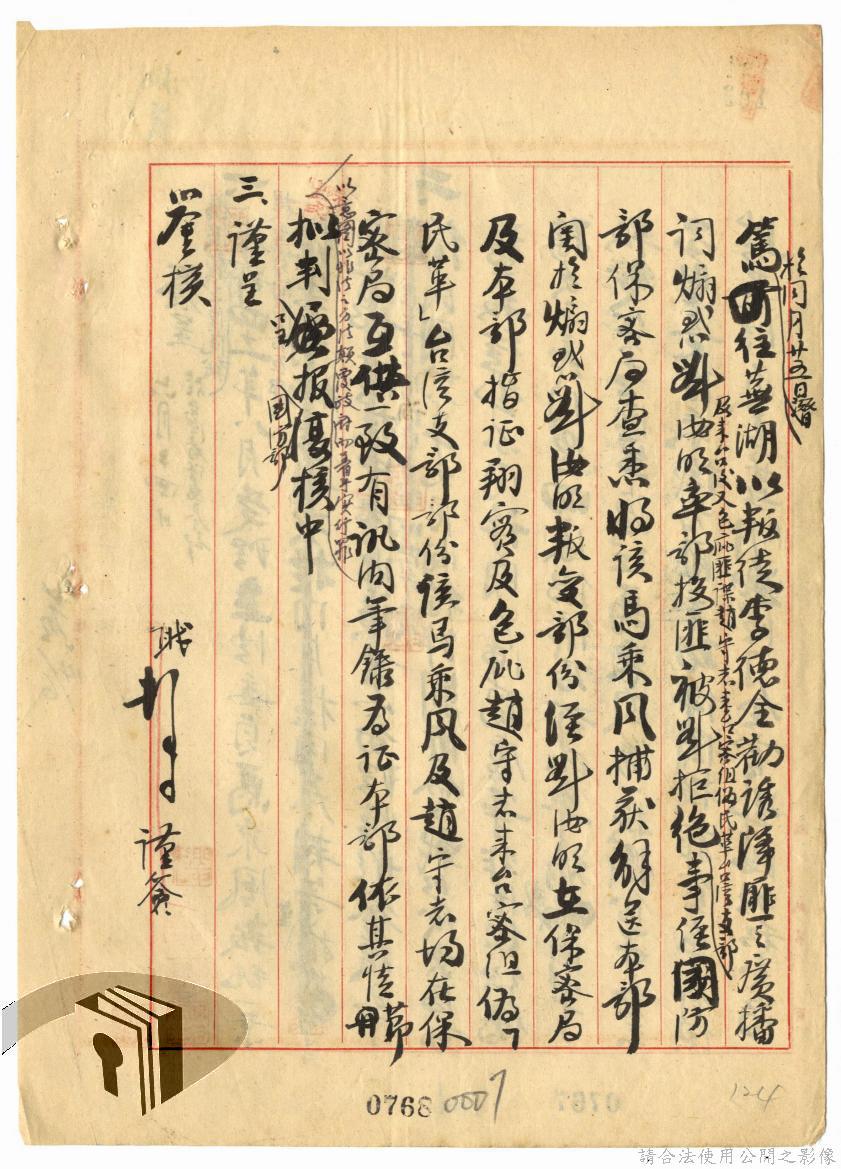 篤前往蕪湖以叛徒李德全勸誘降匪之廣播
於同月廿五日
詞煽惑劉汝明率部投匪被劉拒絕事經國防
及來台後又包庇匪諜趙守志來台密組偽民革台灣支部
部保密局查悉將該馬乘風捕獲解送本部
關於煽惑劉汝明叛變部份經劉汝明在保密局
及本部指証翔實及包庇趙守志來台密組偽「
民革」台灣支部部份該馬乘風及趙守志均在保
密局互供一致有訊問筆錄為证本部依其情節
以意圖以非法之方法顛覆政府而著手實行罪
擬判呈報復核中
國防部
三、謹呈
鑒核
職
謹簽
0768
0007
124
請合法使用公開之影像